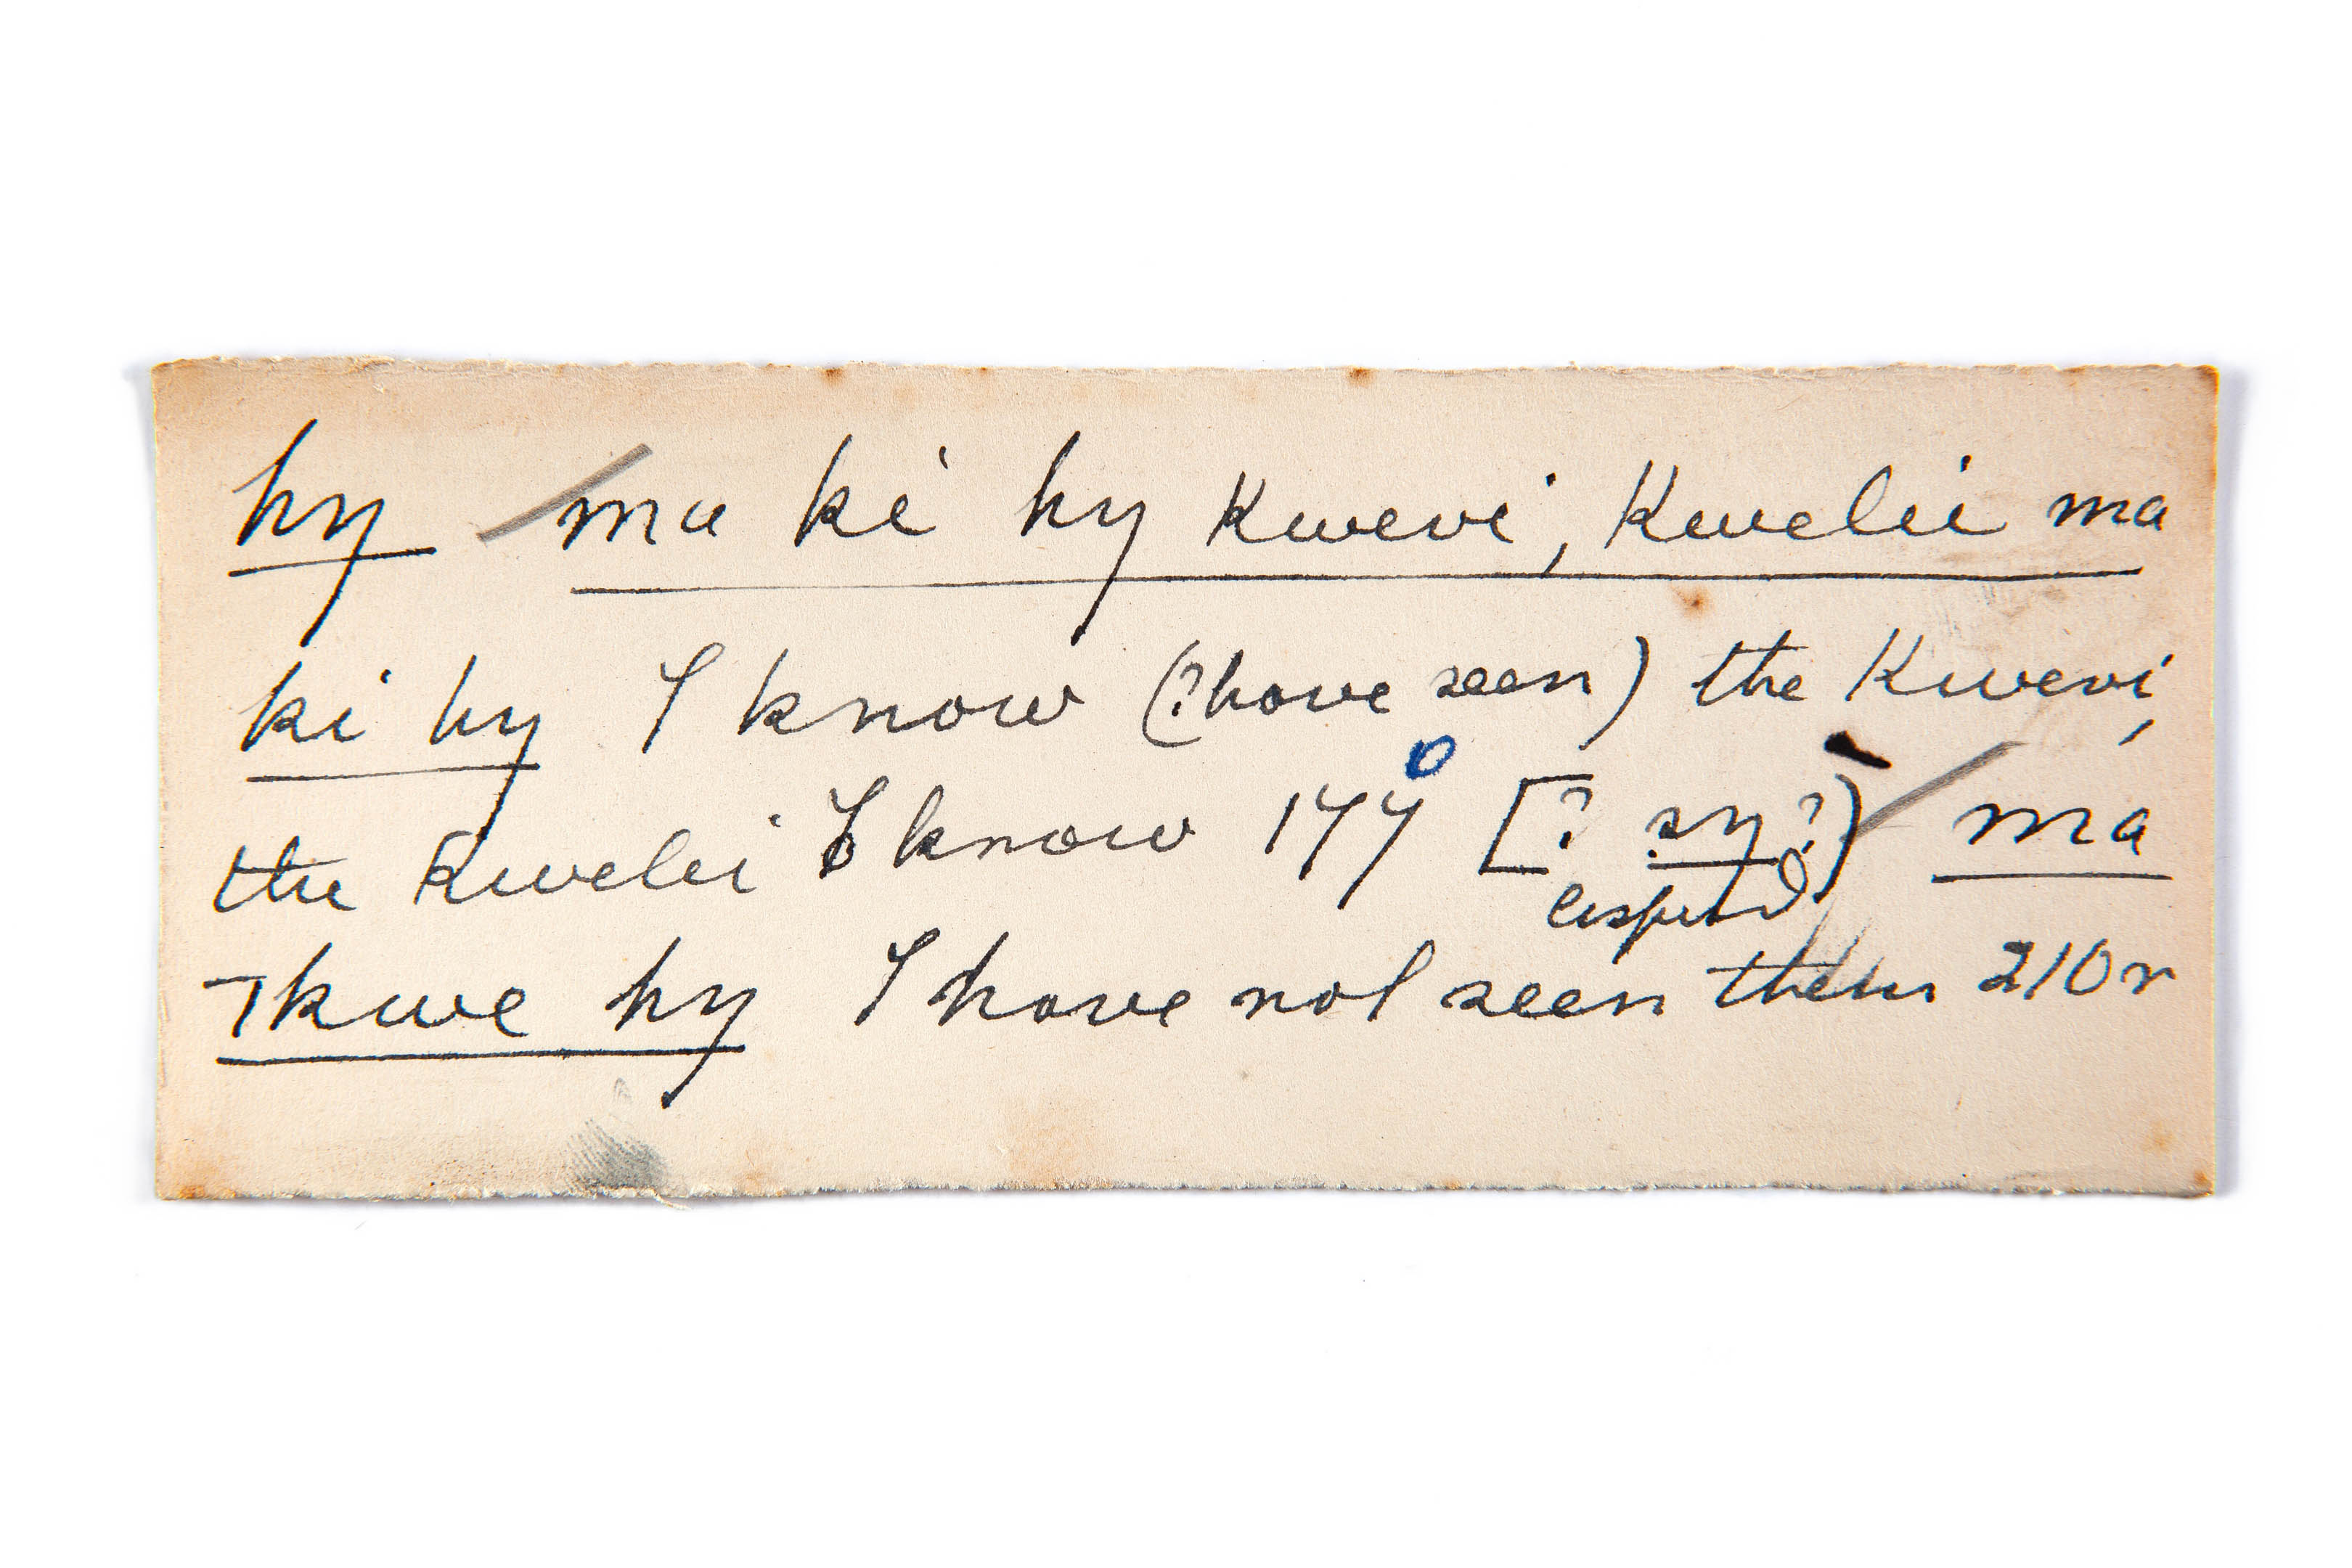 hŋ ma ki hŋ Kwevi, Kwelii ma
ki hŋ I know (?have seen) the Kwevi,
the Kwelii I know 177 [? sŋ?] ma
lisped
⌝kwe hŋ I have not seen them 210r